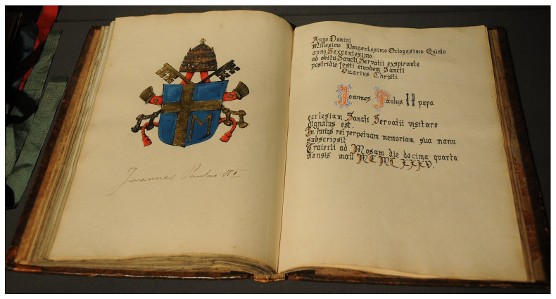 Joannes Paulus II
Anno Domini
Millesimo Nongentesimo Octogesimo Quinto
anno Septentesimo
ad obitu Sancti Servatii expirente
postridie festi eiusdem Sancti
Vicarius Christi
Joannes Paulus II papa
ecclesiam Sancti Servatii visitare
dignatus est.
In huius rei perpetuam memoriam sua manu
subscripsit
Traiecti ad Mosam die decima quarta
mensis maii MCMLXXXV.